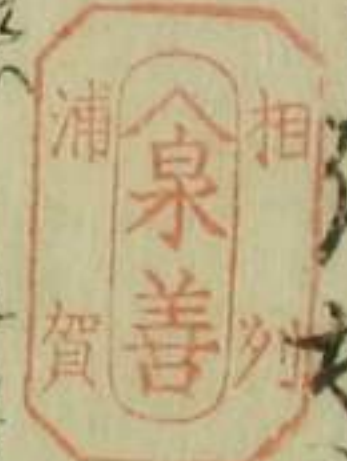 相州
𠆢泉善
浦賀